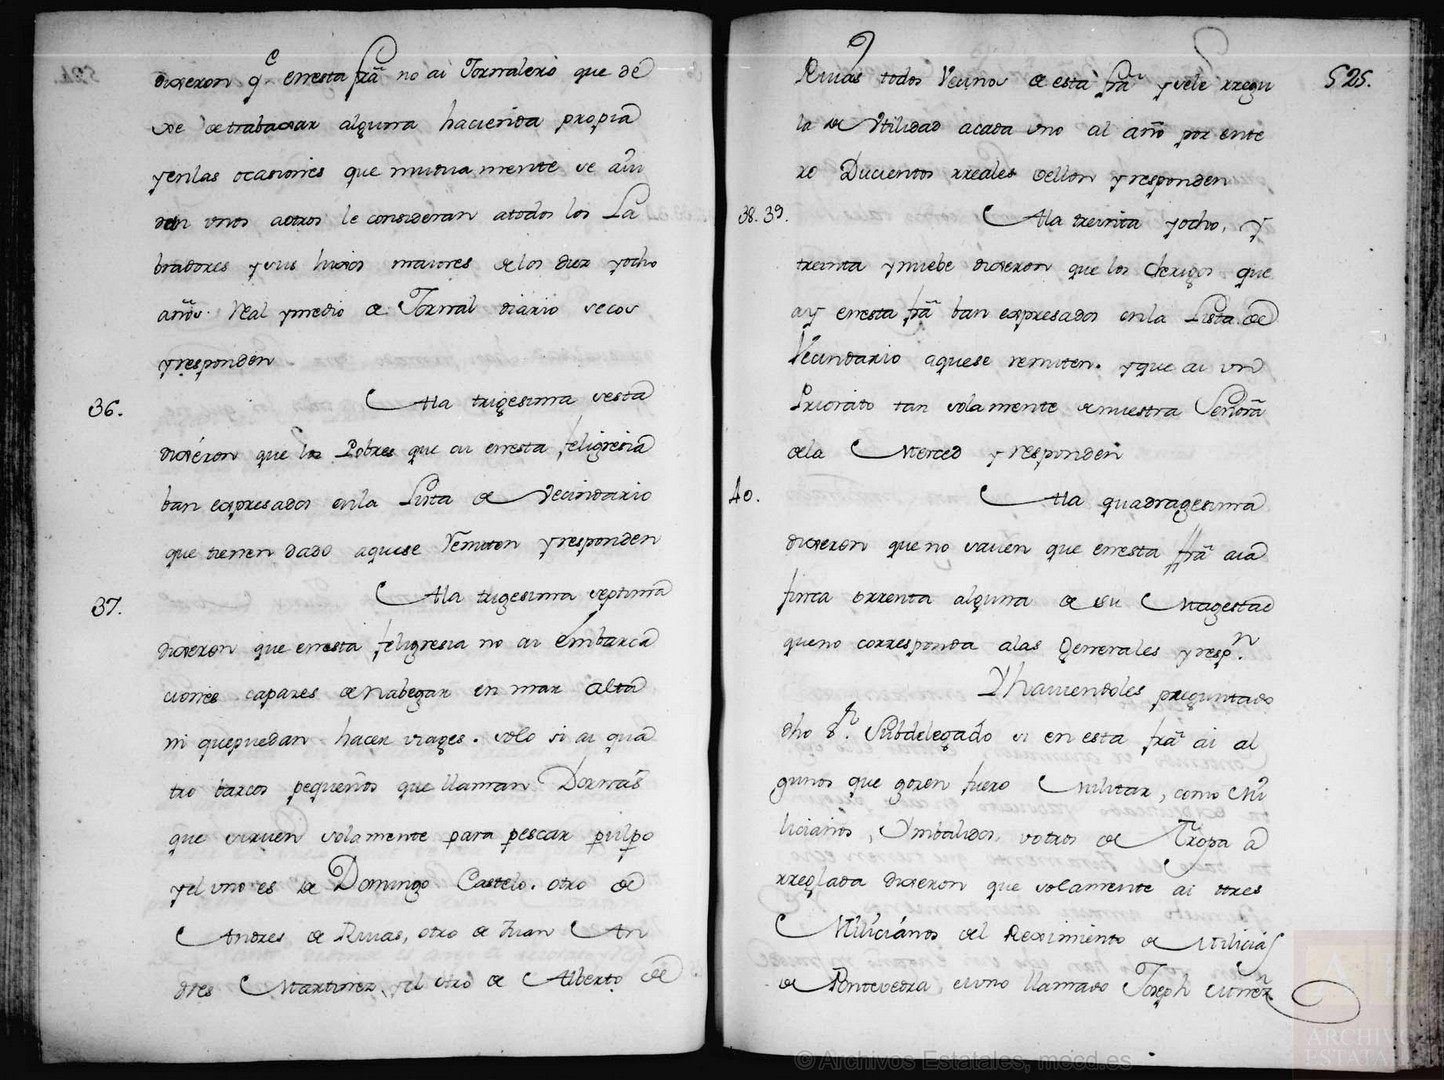 dixeron q.e en esta frã no ai Jornalero que dê
xe de trabaxar alguna hacienda propia
y en las ocasiones que mutuamente se aiu
dan unos a otros le consideran a todos los La
bradores y sus hixos maiores de los diez y ocho
años. Real y medio de Jornal diario secos
y responden
36. A la trigesima sesta
dixeron que los Pobres que ai en esta feligresia
ban expresados en la Lista de Vecindario
que tienen dado a que se Remiten y responden
37. A la trigesima septima
dixeron que en esta feligresia no ai Embarca
ciones capazes de nabegar en mar alta
ni que puedan hacer viages. solo si ai qua
tro barcos pequeños que llaman Dornas
que sirven solamente para pescar pulpo
y el uno es de Domingo Castelo. otro de
Andres de Rivas, otro de Juan An
dres Martinez, y el otro de Alberto de
525.
Rivas todos Vecinos de esta frã y se le rregu
la de Utilidad a cada uno al año por ente
ro Ducientos rreales vellon y responden
38. 39. A la treinta y ocho, y
treinta y nuebe dixeron que los Clerigos que
ay en esta frã ban expresados en la Lista de
Vecindario a que se remiten. y que ai un
Priorato tan solamente de nuestra Señora
de la Merced y responden
40. A la quadragesima
dixeron que no saven que en esta frã aia
finca o rrenta alguna de su Magestad
que no corresponda a las Generales y resp.n
Y haviendoles preguntado
dho s.r Subdelegado si en esta frã ai al
gunos que gozen fuero Militar, como Mi
licianos, Ymbalidos, u otros de Tropa a
rreglada dixeron que solamente ai tres
Milicianos del Reximiento de Milicias
de Pontevedra, el uno llamado Joseph
© Archivos Estatales, mecd.es
ARCHIVOS
ESTATALES